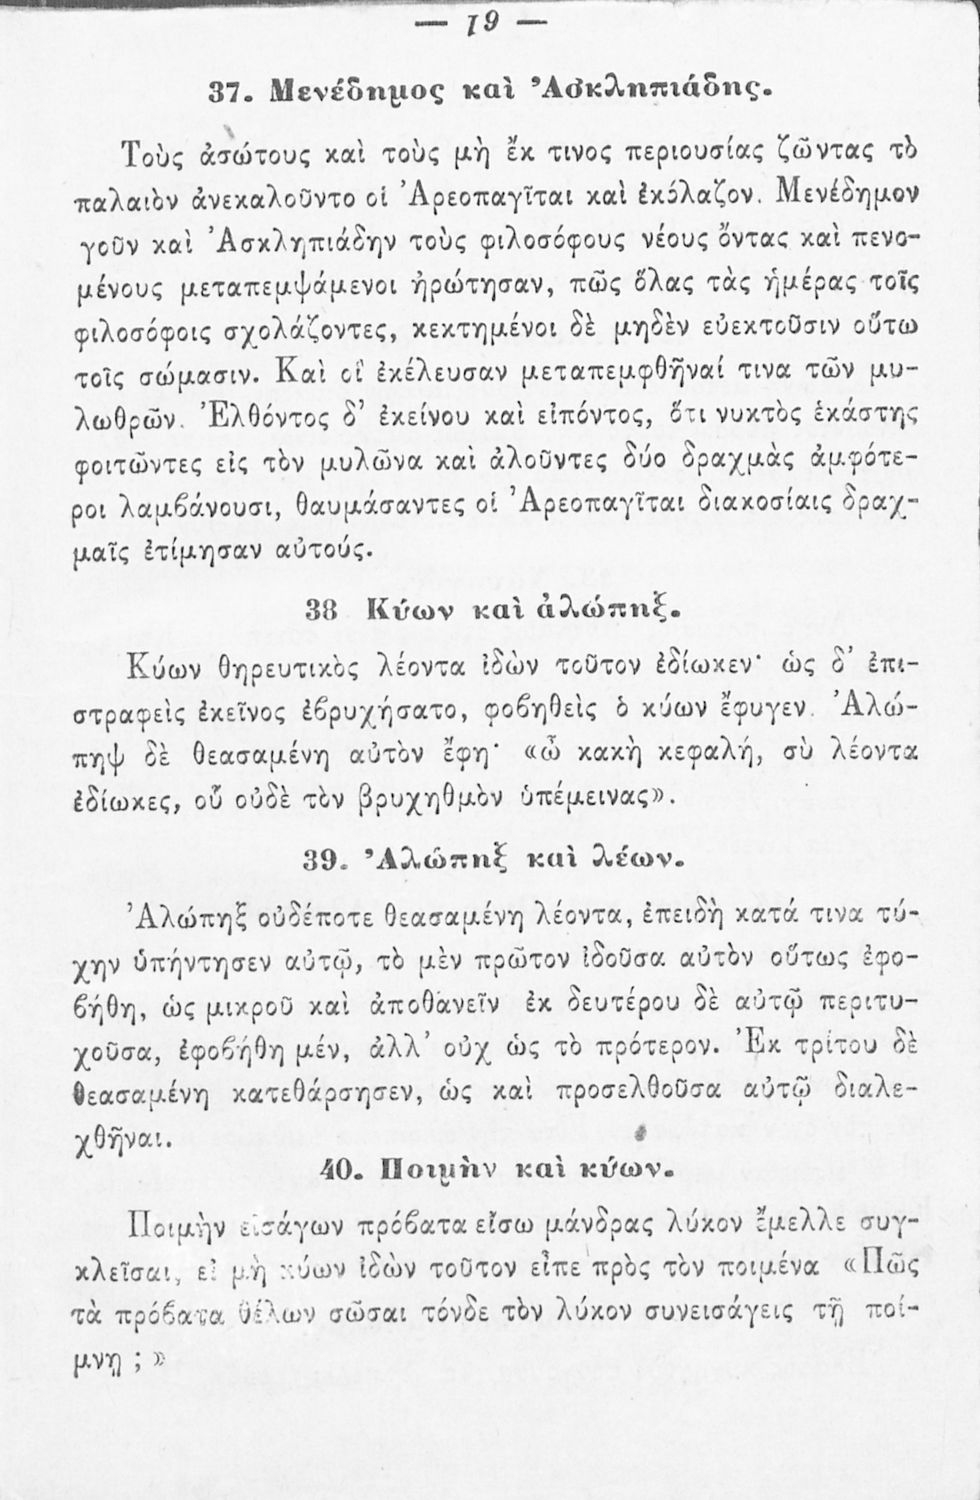 — 19 —
37. Μενέδημος καὶ Ἀσκληπιάδης.
Τοὺς ἀσώτους καὶ τοὺς μὴ ἔκ τινος περιουσίας ζῶντας τὸ
παλαιὸν ἀνεκαλοῦντο οἱ Ἀρεοπαγῖται καὶ ἐκόλαζον. Μενέδημον
γοῦν καὶ Ἀσκληπιάδην τοὺς φιλοσόφους νέους ὄντας καὶ πενο-
μένους μεταπεμψάμενοι ἠρώτησαν, πῶς ὅλας τὰς ἡμέρας τοῖς
φιλοσόφοις σχολάζοντες, κεκτημένοι δὲ μηδὲν εὐεκτοῦσιν οὕτω
τοῖς σώμασιν. Καὶ οἳ ἐκέλευσαν μεταπεμφθῆναί τινα τῶν μυ-
λωθρῶν. Ἐλθόντος δ’ ἐκείνου καὶ εἰπόντος, ὅτι νυκτὸς ἑκάστης
φοιτῶντες εἰς τὸν μυλῶνα καὶ ἀλοῦντες δύο δραχμὰς ἀμφότε-
ροι λαμβάνουσι, θαυμάσαντες οἱ Ἀρεοπαγῖται διακοσίαις δραχ-
μαῖς ἐτίμησαν αὐτούς.
38 Κύων καὶ ἀλώπηξ.
Κύων θηρευτικὸς λέοντα ἰδὼν τοῦτον ἐδίωκεν· ὡς δ’ ἐπι-
στραφεὶς ἐκεῖνος ἐβρυχήσατο, φοβηθεὶς ὁ κύων ἔφυγεν. Ἀλώ-
πηψ δὲ θεασαμένη αὐτὸν ἔφη· «ὦ κακὴ κεφαλή, σὺ λέοντα
ἐδίωκες, οὗ οὐδὲ τὸν βρυχηθμὸν ὑπέμεινας».
39. Ἀλώπηξ καὶ λέων.
Ἀλώπηξ οὐδέποτε θεασαμένη λέοντα, ἐπειδὴ κατά τινα τύ-
χην ὑπήντησεν αὐτῷ, τὸ μὲν πρῶτον ἰδοῦσα αὐτὸν οὕτως ἐφο-
βήθη, ὡς μικροῦ καὶ ἀποθανεῖν ἐκ δευτέρου δὲ αὐτῷ περιτυ-
χοῦσα, ἐφοβήθη μέν, ἀλλ’ οὐχ ὡς τὸ πρότερον. Ἐκ τρίτου δὲ
θεασαμένη κατεθάρσησεν, ὡς καὶ προσελθοῦσα αὐτῷ διαλε-
χθῆναι.
40. Ποιμὴν καὶ κύων.
Ποιμὴν εἰσάγων πρόβατα εἴσω μάνδρας λύκον ἔμελλε συγ-
κλεῖσαι, εἰ μὴ κύων ἰδὼν τοῦτον εἶπε πρὸς τὸν ποιμένα «Πῶς
τὰ πρόβατα θέλων σῶσαι τόνδε τὸν λύκον συνεισάγεις τῇ ποί-
μνῃ ; »